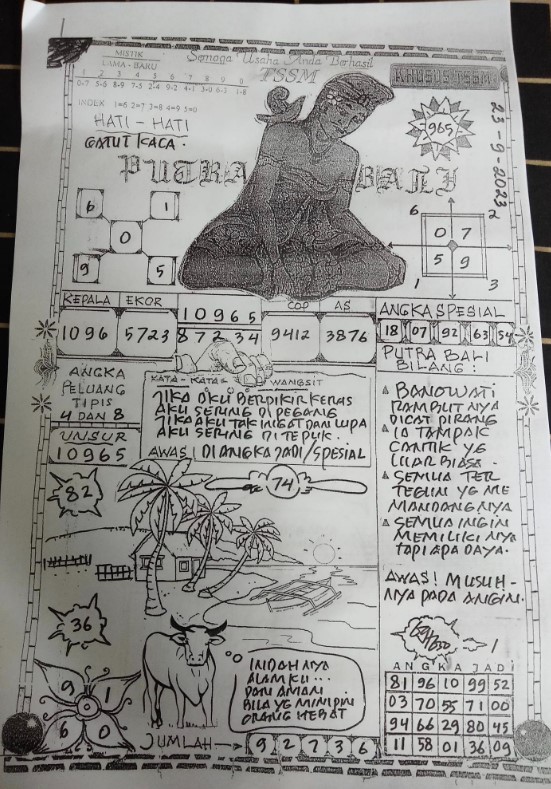 MISTIK
LAMA - BARU
Semoga Usaha Anda Berhasil
TSSM
KHUSUS TSSM
1 2 3 4 5 6 7 8 9 0
INDEX 1=6 2=7 3=8 4=9 5=0
HATI - HATI
GATUT KACA.
PUTRA BALI
965
23-9-2023
6 1
0
9 5
6 2
0 7
5 9
1 3
KEPALA EKOR
1096 5723
10965
87234
COP AS
9412 3876
ANGKA SPESIAL
18 07 92 63 54
ANGKA
PELUANG
TIPIS
4 DAN 8
UNSUR
10965
KATA - KATA WANGSIT
JIKA AKU BERPIKIR KERAS
AKU SERING DIPEGANG
JIKA AKU TAK INGAT DAN LUPA
AKU SERING DI TEPUK.
AWAS! DI ANGKA JADI/SPESIAL
PUTRA BALI
BILANG:
BANOWATI
RAMBUTNYA
DICAT PIRANG
IA TAMPAK
CANTIK YG
LUAR BIASA.
SEMUA TER
TEGUN YG ME
MANDANGNYA
SEMUA INGIN
MEMILIKINYA
TAPI APA DAYA.
AWAS! MUSUH-
NYA PADA ANGIN.
82
74
36
9 1
6 0
INDAHNYA
ALAMKU...
DAN AMAN
BILA YG MIMPIN
ORANG HEBAT
JUMLAH → 9 2 7 3 6
ANGKA JADI
81 96 10 99 52
03 70 55 71 00
94 66 29 80 45
11 58 01 36 09